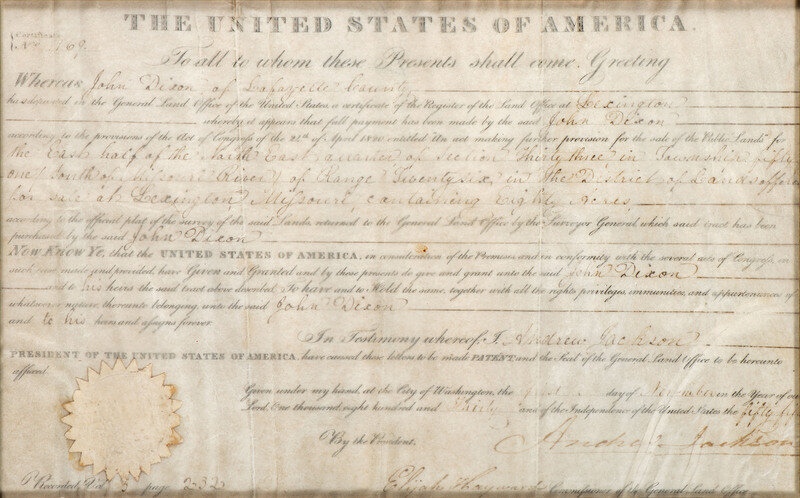 THE UNITED STATES OF AMERICA.
Certificate
No. 169.
To all to whom these Presents shall come, Greeting
Whereas John Dixon of Lafayette County
has deposited in the General Land Office of the United States, a certificate of the Register of the Land Office at Lexington
whereby it appears that full payment has been made by the said John Dixon
according to the provisions of the Act of Congress of the 24th of April 1820, entitled An act making further provision for the sale of the Public Lands for
the East half of the North East quarter of Section Thirty three in Township fifty
one (South of Missouri River) of Range Twenty six, in the District of Lands offered
for sale at Lexington Missouri containing Eighty Acres,
according to the official plat of the Survey of the said Lands, returned to the General Land Office by the Surveyor General which said tract has been
purchased by the said John Dixon
Now Know Ye, that the UNITED STATES OF AMERICA, in consideration of the Premises, and in conformity with the several acts of Congress, in
such case made and provided, have Given and Granted and by these presents do give and grant unto the said John Dixon
and to his heirs the said tract above described. To have and to Hold the same, together with all the rights, privileges, immunities, and appurtenances of
whatsoever nature, thereunto belonging, unto the said John Dixon
and to his heirs and assigns forever.
In Testimony whereof I, Andrew Jackson
PRESIDENT OF THE UNITED STATES OF AMERICA, have caused these letters to be made PATENT, and the Seal of the General Land Office to be hereunto
affixed.
Given under my hand, at the City of Washington, the first day of November in the Year of our
Lord, One thousand, eight hundred and thirty and of the Independence of the United States the fifty fifth
By the President, Andrew Jackson
Elijah Hayward Commissioner of the General Land Office
Recorded, Vol 3 page 232